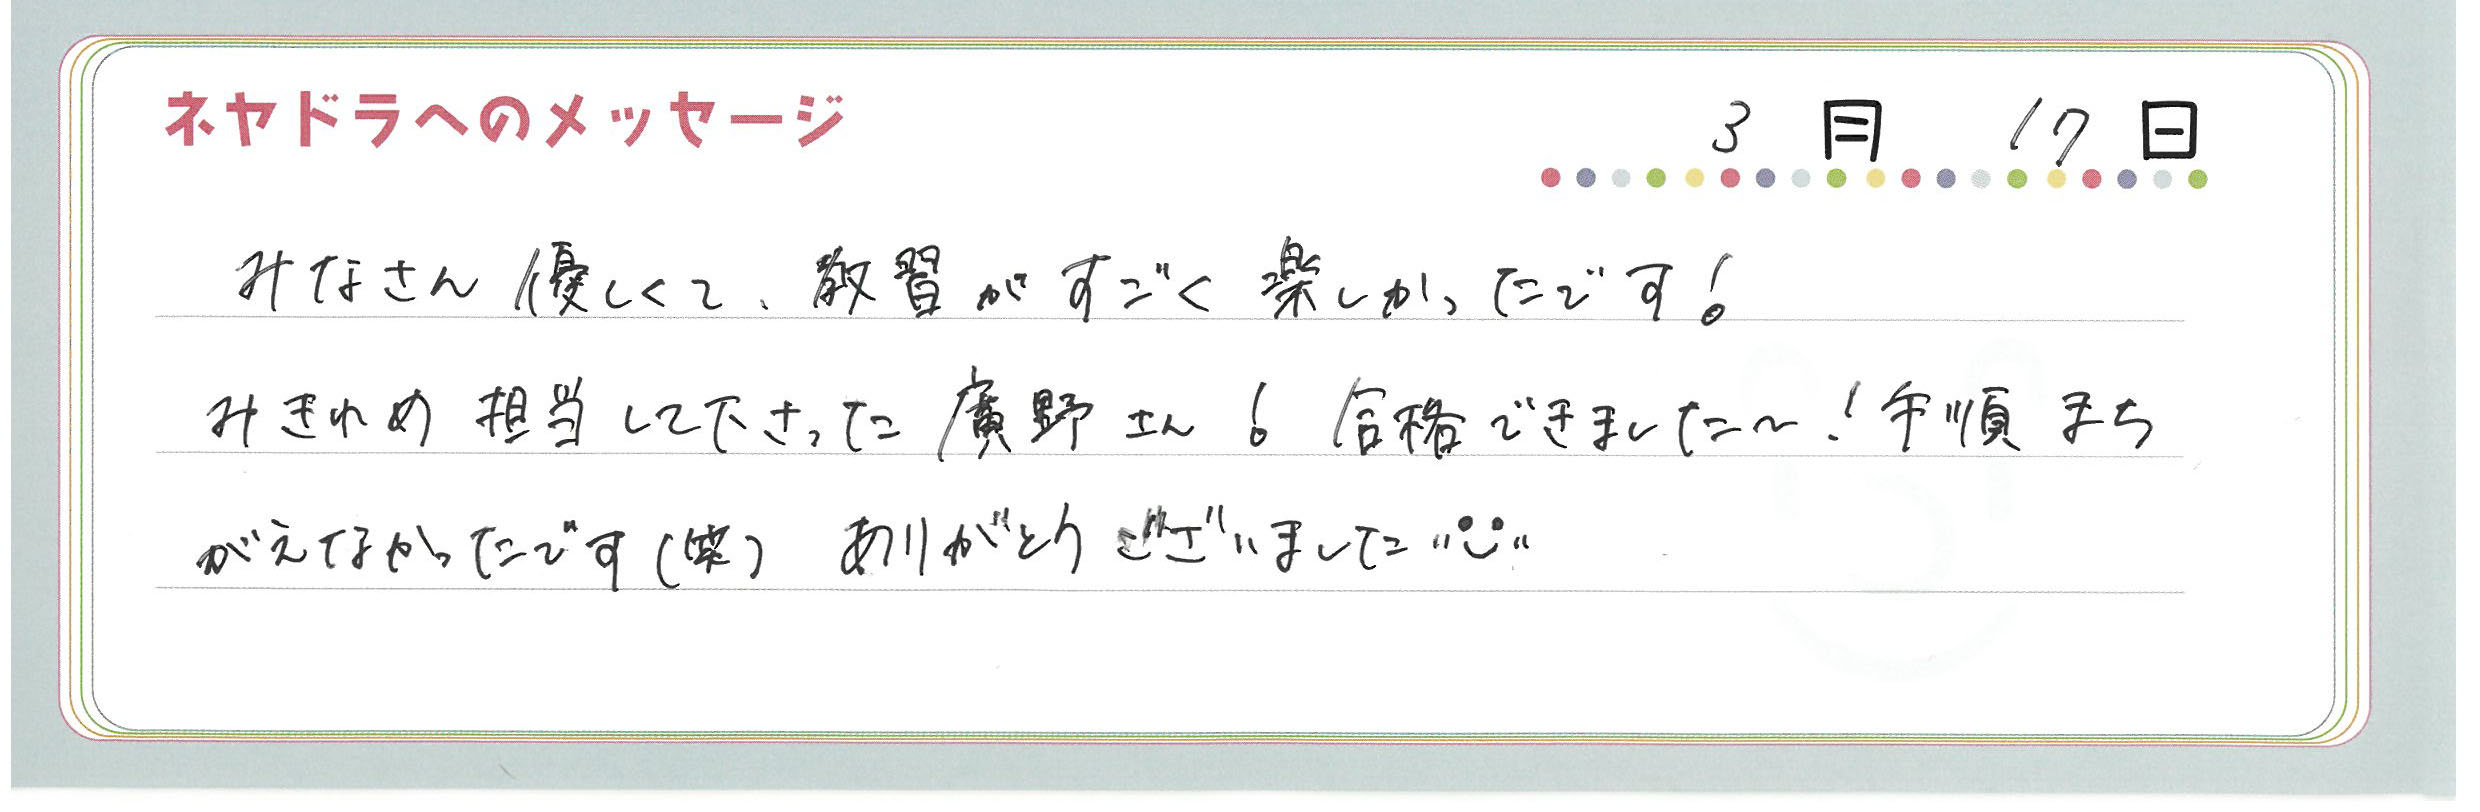 ネヤドラへのメッセージ
3月 17日
みなさん優しくて、教習がすごく楽しかったです!
みきわめ担当して下さった廣野さん!合格できました〜!手順まち
がえてなかったです(笑) ありがとうございました